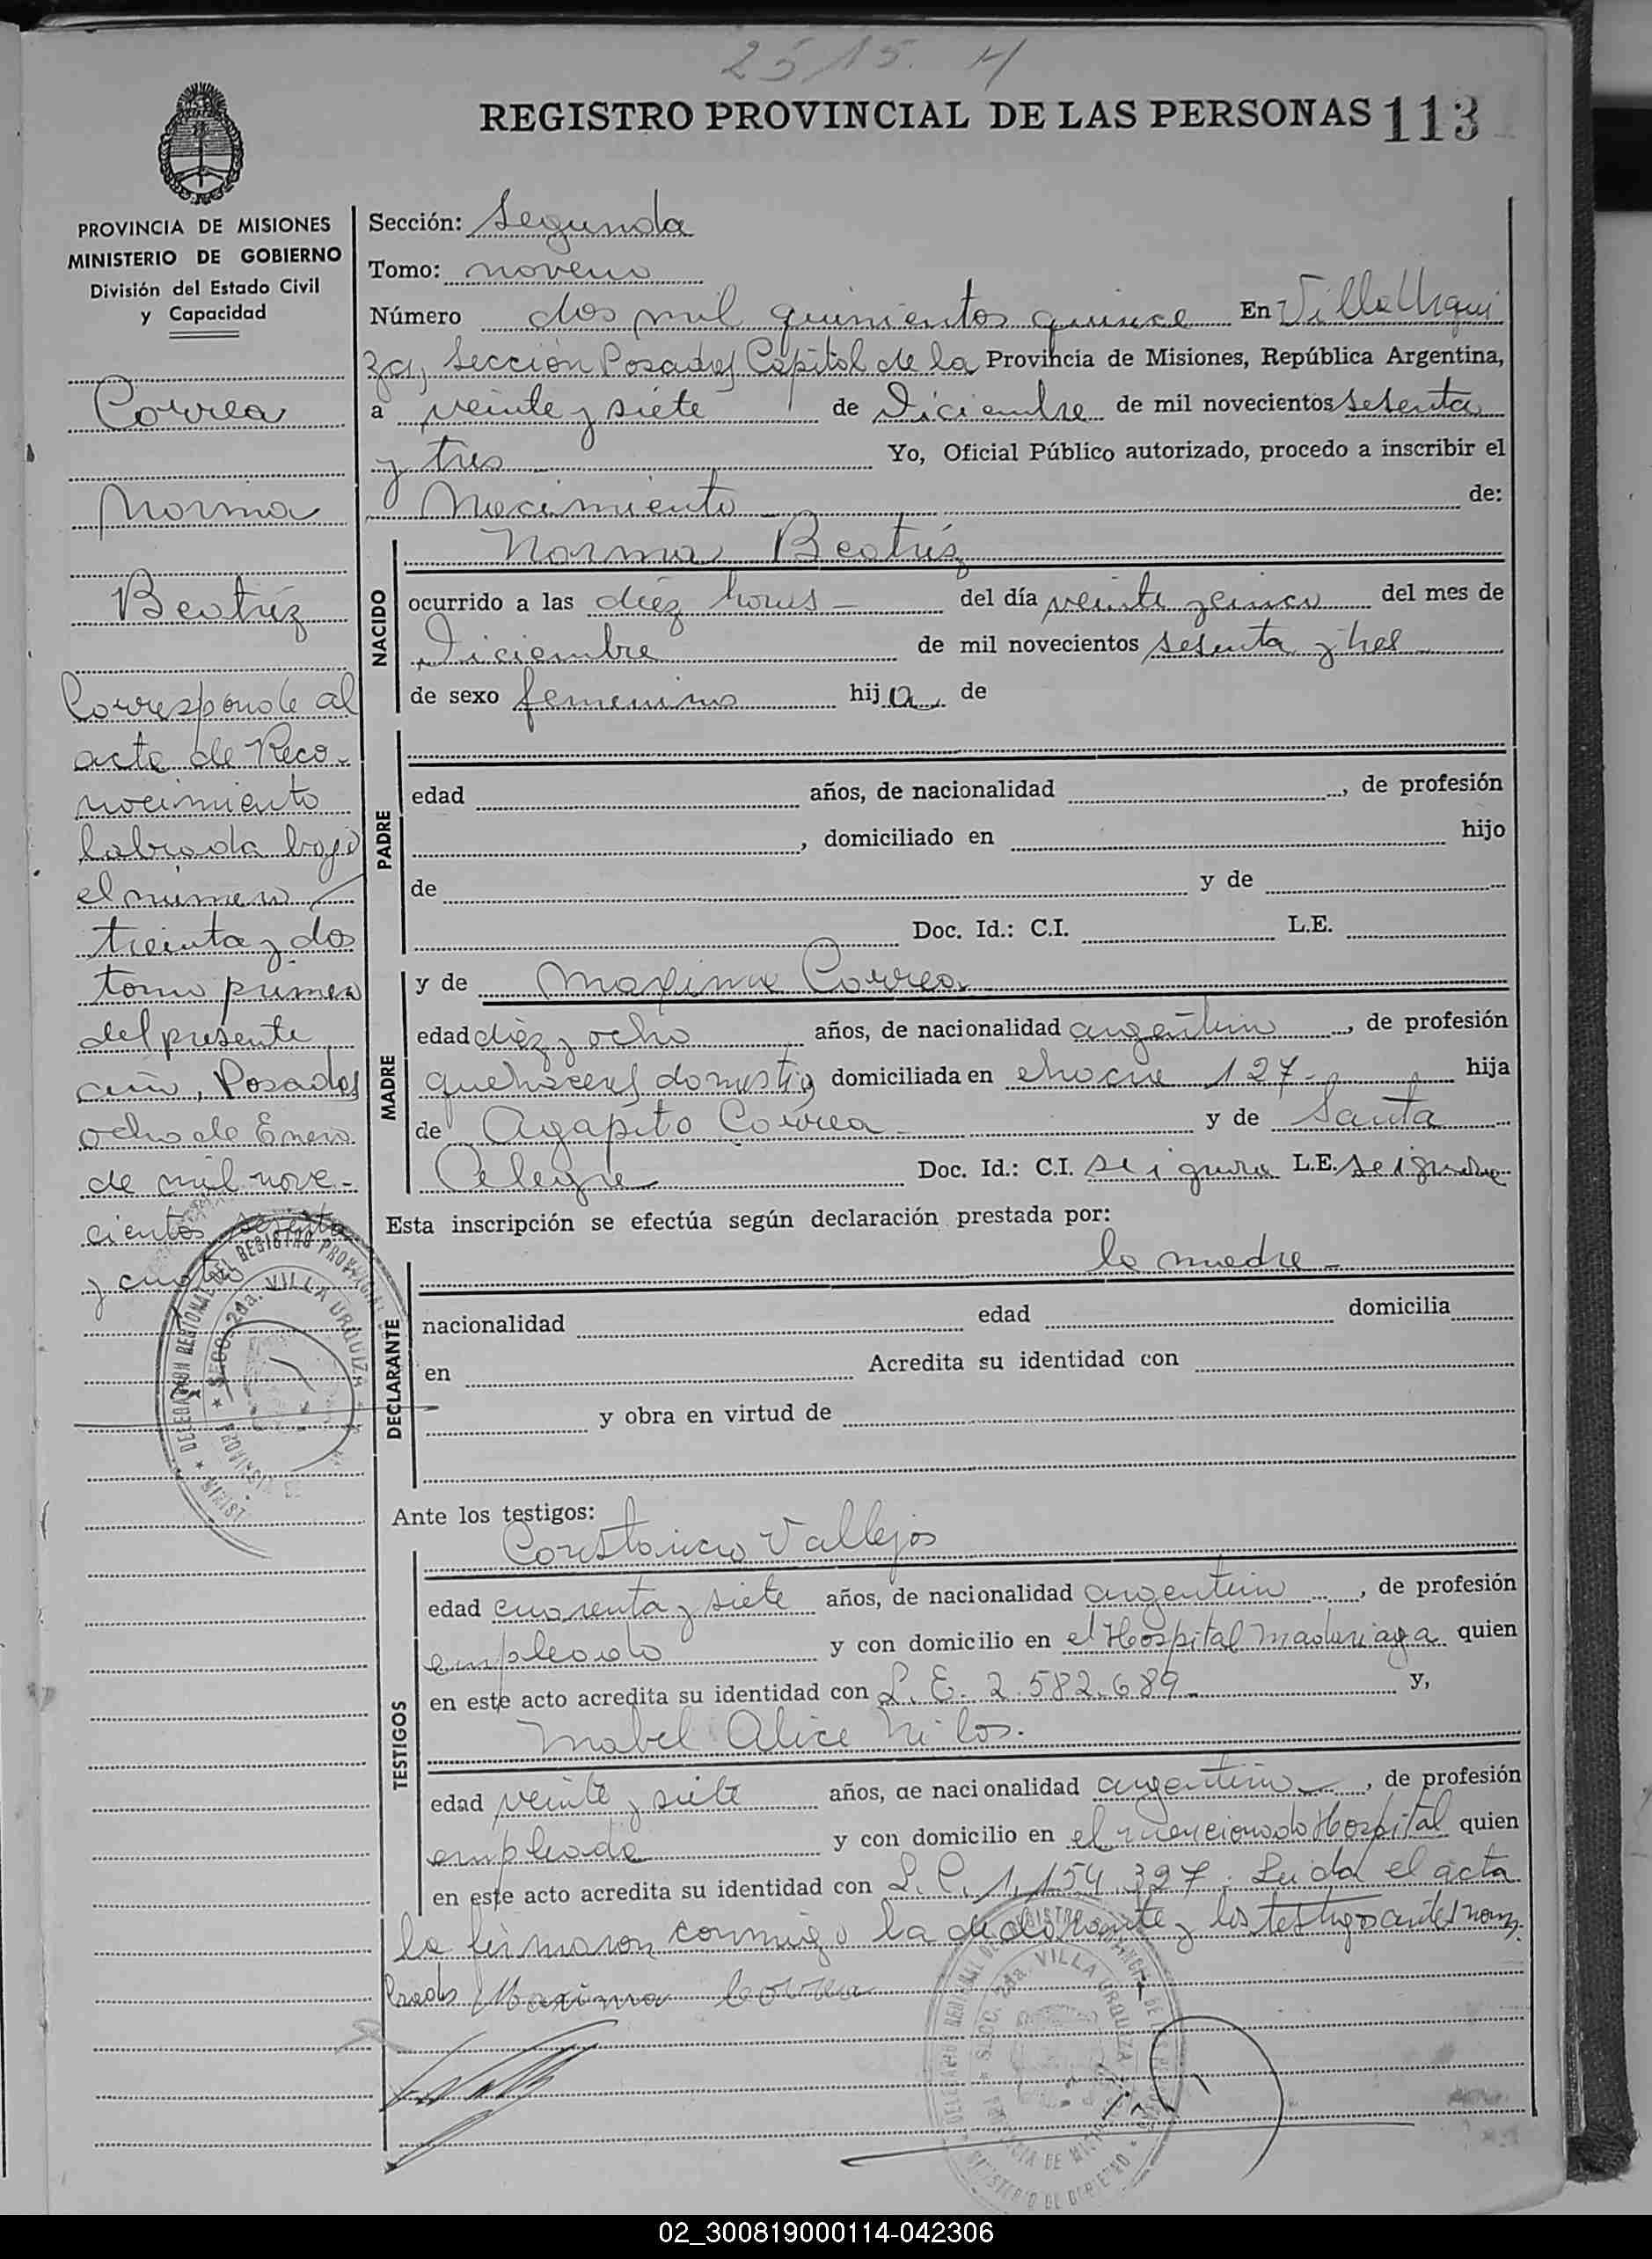 2515. H
REGISTRO PROVINCIAL DE LAS PERSONAS 113
PROVINCIA DE MISIONES
MINISTERIO DE GOBIERNO
División del Estado Civil
y Capacidad
Correa
Norma
Beatríz
Corresponde al
acta de Reco-
nocimiento
labrada bajo
el número
treinta y dos
tomo primero
del presente
año, Posadas
ocho de Enero
de mil nove-
cientos setenta
y cuatro
Sección: Segunda
Tomo: noveno
Número dos mil quinientos quince En Villa Urqui
za, Sección Posadas Capital de la Provincia de Misiones, República Argentina,
a veinte y siete de Diciembre de mil novecientos setenta
y tres Yo, Oficial Público autorizado, procedo a inscribir el
Nacimiento de:
NACIDO
Norma Beatríz
ocurrido a las diéz horas - del día veinte y cinco del mes de
Diciembre de mil novecientos setenta y tres
de sexo femenino hija de
PADRE
edad años, de nacionalidad , de profesión
, domiciliado en hijo
de y de
Doc. Id.: C.I. L.E.
MADRE
y de Maxima Correa
edad diéz y ocho años, de nacionalidad argentina , de profesión
quehaceres domestic domiciliada en chacra 127 - hija
de Agapito Correa - y de Santa
Alegre Doc. Id.: C.I. L.E.
Esta inscripción se efectúa según declaración prestada por:
DECLARANTE
la madre -
nacionalidad edad domicilia
en Acredita su identidad con
y obra en virtud de
Ante los testigos:
TESTIGOS
Constancio Vallejos
edad cuarenta y siete años, de nacionalidad argentino , de profesión
empleado y con domicilio en el Hospital Madariaga quien
en este acto acredita su identidad con L. E. 2.582.689 - y,
Mabel Alice
edad veinte y siete años, de nacionalidad argentina , de profesión
empleada y con domicilio en el mencionado Hospital quien
en este acto acredita su identidad con L. C. 1.154.327. Leida el acta
la firmaron conmigo la declarante y los testigos antes nom
brados Maxima Correa
DELEGACION REGIONAL DEL REGISTRO PROVINCIAL
SECC. 2da. VILLA URQUIZA
PROVINCIA DE MISIONES
MINISTERIO DE GOBIERNO
02_300819000114-042306